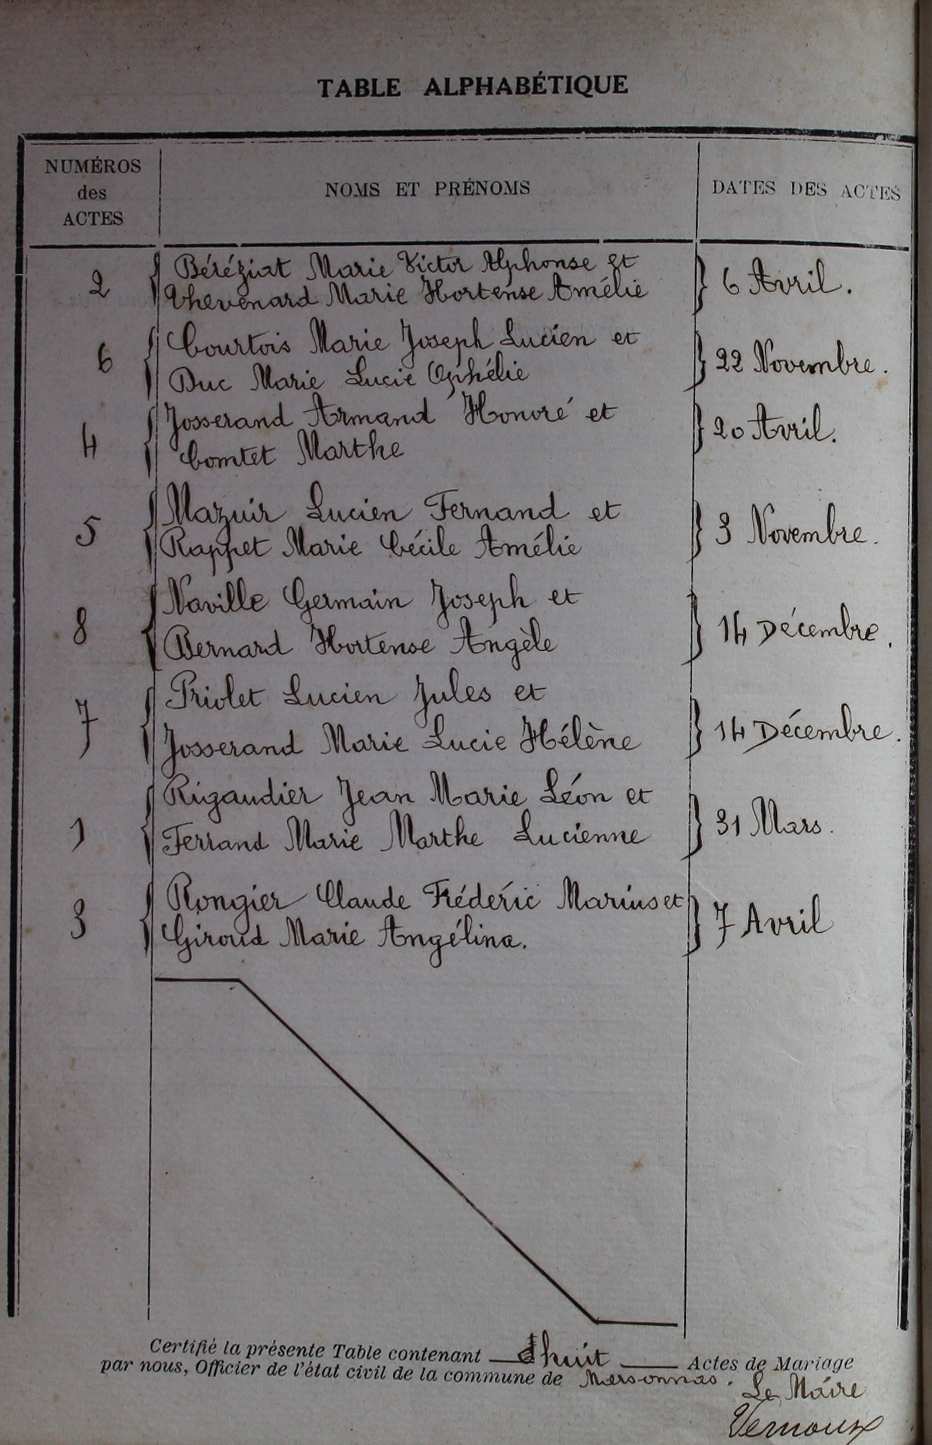 TABLE ALPHABÉTIQUE
NUMÉROS
des
ACTES
NOMS ET PRÉNOMS
DATES DES ACTES
2 Béréziat Marie Victor Alphonse et
Thevenard Marie Hortense Amélie 6 Avril.
6 Courtois Marie Joseph Lucien et
Duc Marie Lucie Ophélie 22 Novembre.
4 Josserand Armand Honoré et
Comtet Marthe 20 Avril.
5 Mazuir Lucien Fernand et
Rappet Marie Cécile Amélie 3 Novembre.
8 Naville Germain Joseph et
Bernard Hortense Angèle 14 Décembre.
7 Priolet Lucien Jules et
Josserand Marie Lucie Hélène 14 Décembre.
1 Rigaudier Jean Marie Léon et
Ferrand Marie Marthe Lucienne 31 Mars.
3 Rongier Claude Fréderic Marius et
Giroud Marie Angélina. 7 Avril
Certifié la présente Table contenant huit Actes de Mariage
par nous, Officier de l'état civil de la commune de Marsonnas. Le Maire
Vernoux